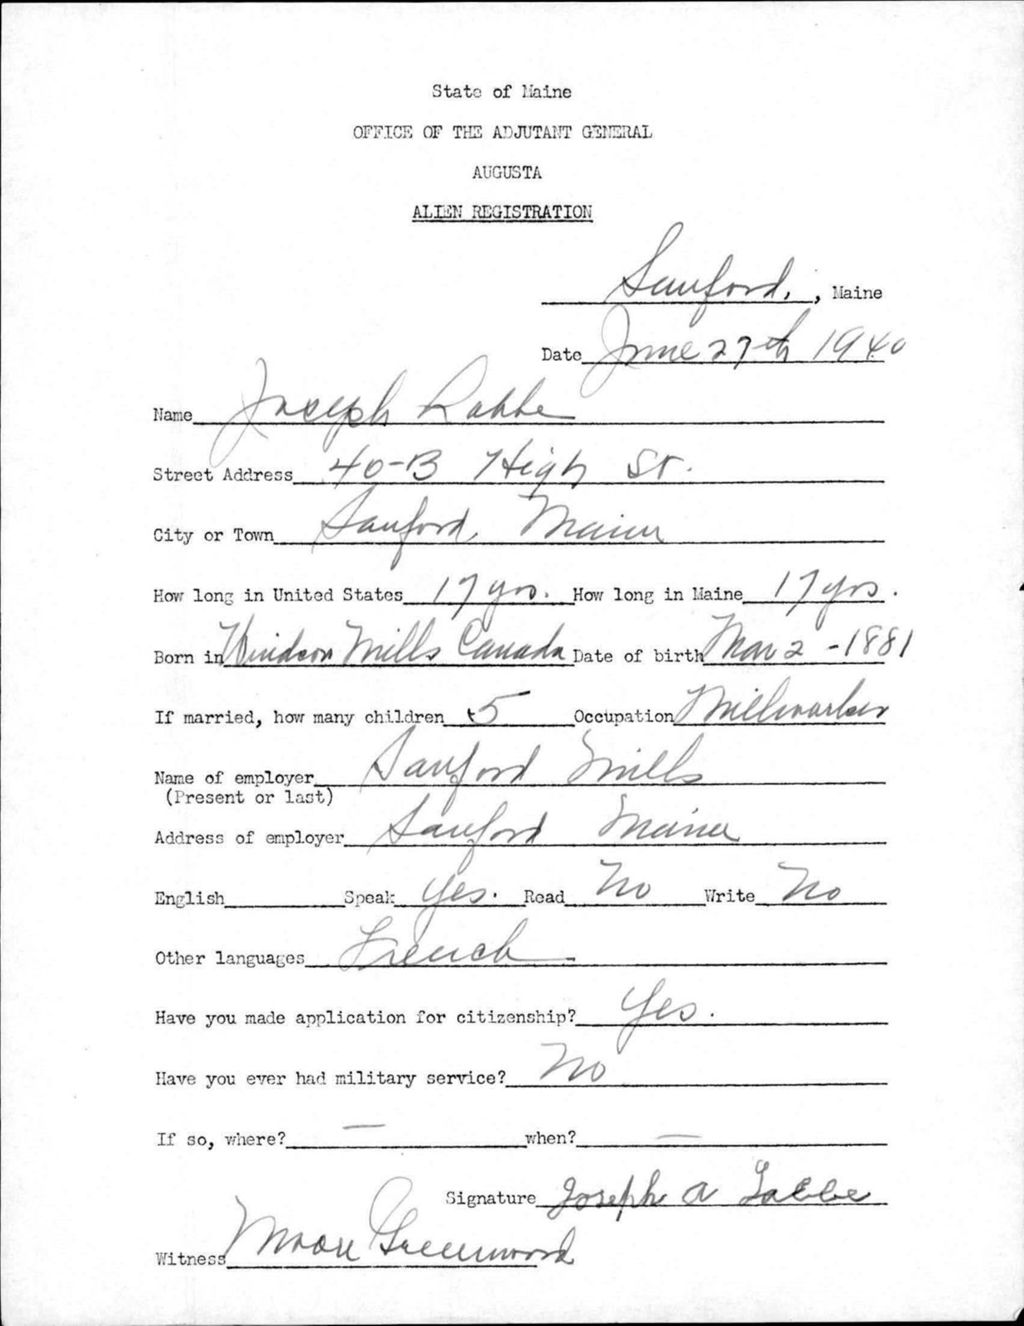 State of Maine
OFFICE OF THE ADJUTANT GENERAL
AUGUSTA
ALIEN REGISTRATION
Sanford, , Maine
Date June 27th 1940
Name Joseph Labbe
Street Address 40-B High St.
City or Town Sanford, Maine
How long in United States 17 yrs. How long in Maine 17 yrs.
Born in Windsor Mills Canada Date of birth Mar 2 - 1881
If married, how many children 5 Occupation Millworker
Name of employer Sanford Mills
(Present or last)
Address of employer Sanford Maine
English Speak Yes. Read No Write No
Other languages French -
Have you made application for citizenship? Yes.
Have you ever had military service? No
If so, where? — when? —
Signature Joseph A Labbe
Witness Greenwood